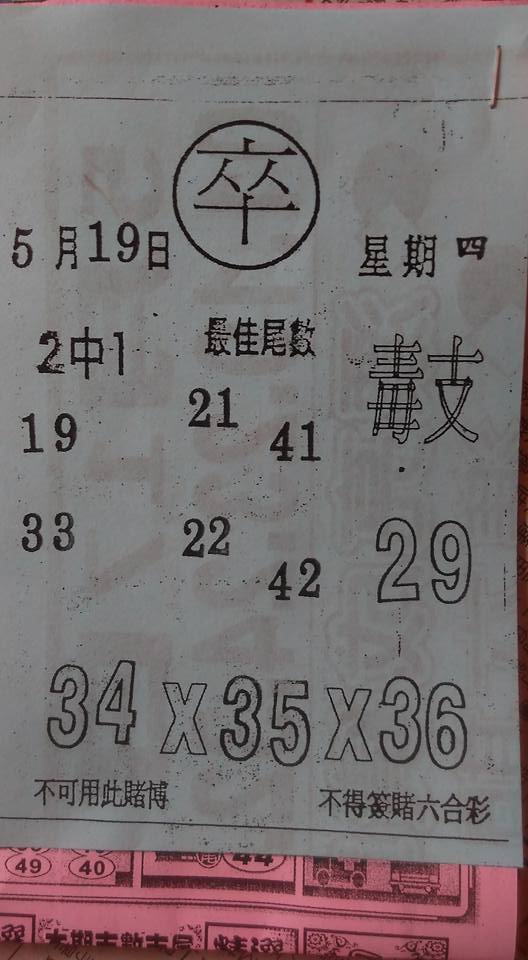 卒
5月19日
星期四
2中1
最佳尾數
毒支
19
21
41
33
22
42
29
34 X 35 X 36
不可用此賭博
不得簽賭六合彩
49
40
44